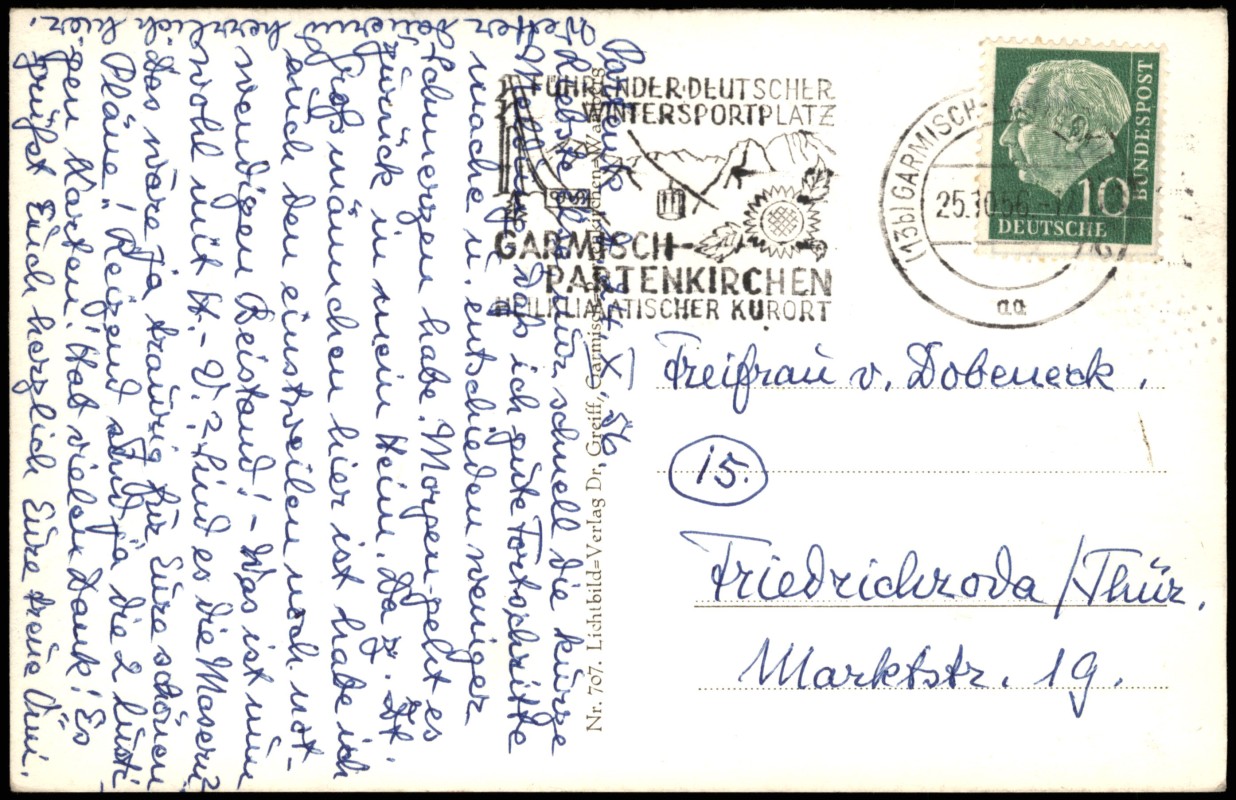 FÜHRENDER DEUTSCHER
WINTERSPORTPLATZ
GARMISCH-
PARTENKIRCHEN
HEILKLIMATISCHER KURORT
(13b) GARMISCH-
25.10.56
aa
10
DEUTSCHE
BUNDESPOST
X. 56.
Liebste nur schnell die kurze
Meldung, daß ich gute Fortschritte
mache u. entschieden weniger
Schmerzen habe. Morgen geht es
zurück in mein Heim. Da z. Zt.
Großmännchen hier ist habe ich
auch den einstweilen noch not-
wendigen Beistand! - Was ist nun
wohl mit H.-V.? Sind es die Masern?
das wäre ja traurig für Eure schönen
Pläne! Reizend sind ja die 2 lusti-
gen Karten! Hab vielen Dank! Es
grüßt Euch herzlich Eure treue
Wetter dauernd herrlich hier.
Nr. 707. Lichtbild=Verlag Dr. Greiff, Garmisch=Partenkirchen-Wamberg
Freifrau v. Dobeneck.
15.
Friedrichroda/Thür.
Marktstr. 19.